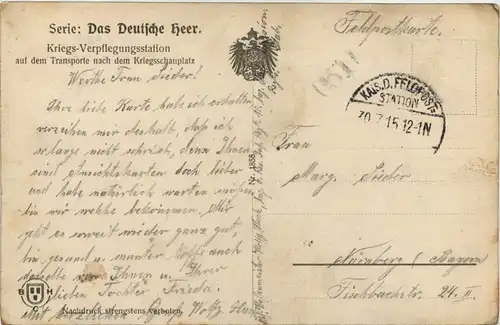 Serie: Das Deutsche Heer.
Kriegs-Verpflegungsstation
auf dem Transporte nach dem Kriegsschauplatz
Werthe Frau Sieder!
Ihre liebe Karte habe ich erhalten
verzeihen mir deshalb, daß ich
so lange nicht schrieb, denn Ihnen
sind Ansichtskarten doch lieber
und habe natürlich warten müßen
bis wir welche bekommen. Mir
geht es soweit wieder ganz gut
bin gesund u. munter hoffe auch
dasselbe von Ihnen u. Ihrer
lieben Tochter Frieda.
mit herzlichen
Nachdruck strengstens verboten.
B H
Nr. 1888
Feldpostkarte.
KAIS. D. FELDPOST=
STATION
30.7.15 12-1N
Frau
Marg. Sieder
Nürnberg (Bayern
Fischbachstr. 24. II.